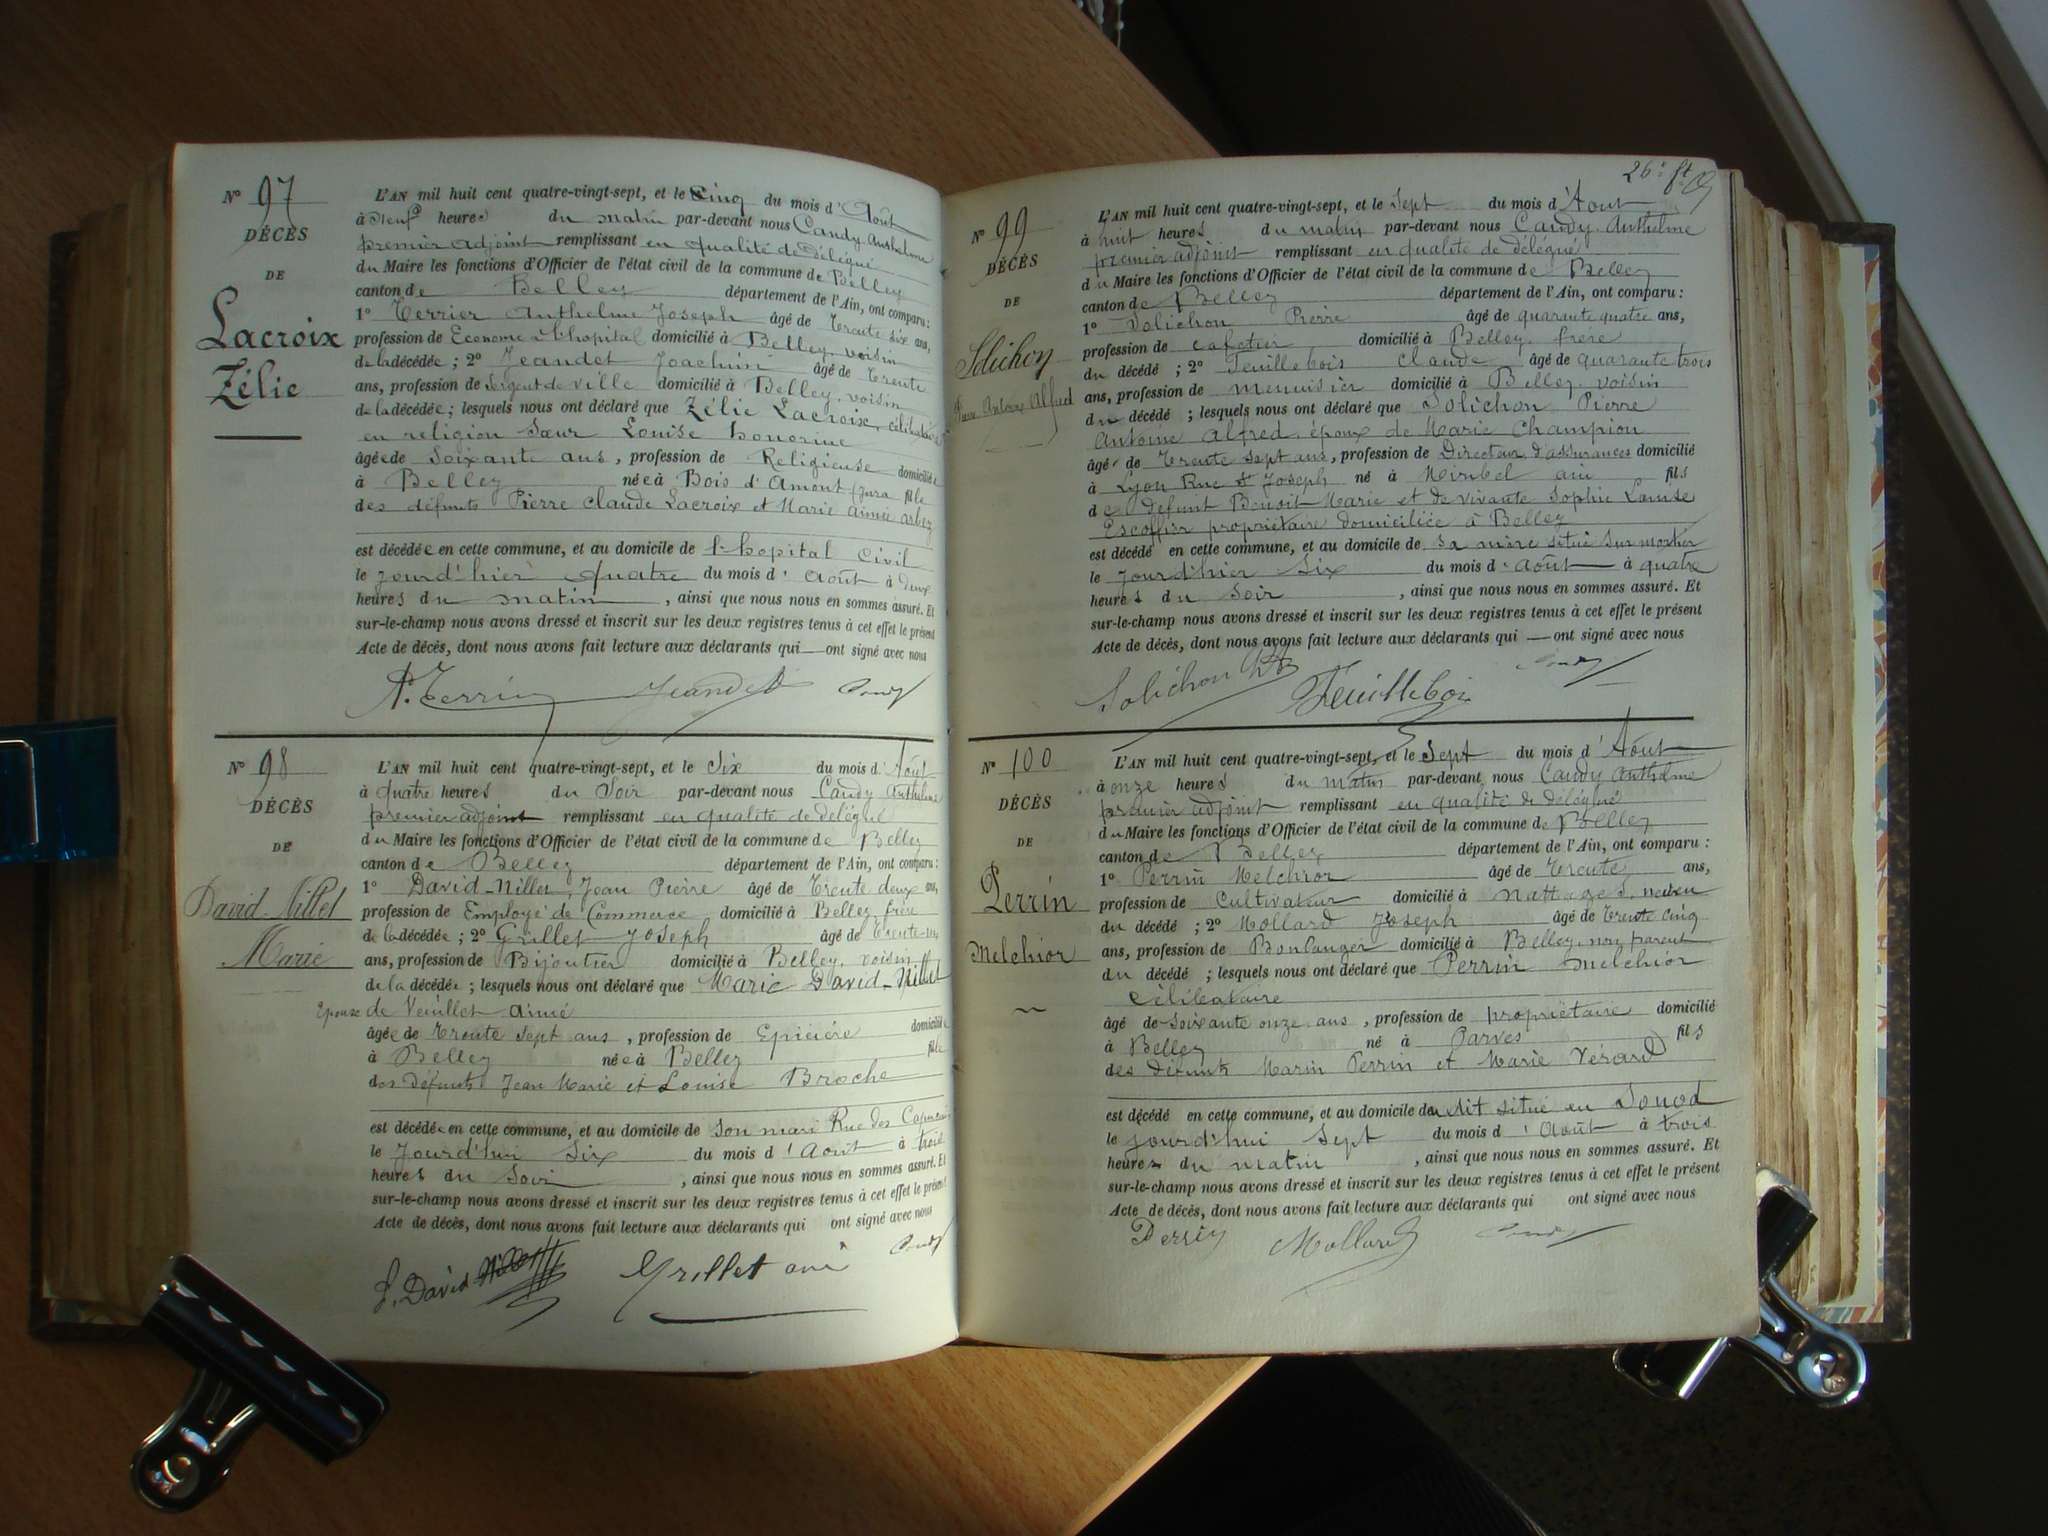 N° 97
DÉCÈS
DE
Lacroix
Zélie
L'AN mil huit cent quatre-vingt-sept, et le Cinq du mois d'Août
à Neuf heures du matin par-devant nous Candy Anthelme
premier adjoint remplissant en qualité de délégué
du Maire les fonctions d'Officier de l'état civil de la commune de Belley
canton de Belley département de l'Ain, ont comparu :
1° Terrier Anthelme Joseph âgé de Trente six ans,
profession de Econome à l'hopital domicilié à Belley, voisin
de la décédée ; 2° Jeandet Joachim âgé de Trente
ans, profession de Sergent de ville domicilié à Belley, voisin
de la décédée ; lesquels nous ont déclaré que Zélie Lacroix, célibataire
en religion Sœur Louise honorine
âgée de Soixante ans, profession de Religieuse domiciliée
à Belley née à Bois d'Amont Jura fille
des défunts Pierre Claude Lacroix et Marie aimée arbez
est décédée en cette commune, et au domicile de l'hopital Civil
le jourd'hier Quatre du mois d'Août à deux
heures du matin, ainsi que nous nous en sommes assuré. Et
sur-le-champ nous avons dressé et inscrit sur les deux registres tenus à cet effet le présent
Acte de décès, dont nous avons fait lecture aux déclarants qui — ont signé avec nous
A. Terrier Jeandet Candy
N° 98
DÉCÈS
DE
David-Nillet
Marie
L'AN mil huit cent quatre-vingt-sept, et le Six du mois d'Août
à Quatre heures du Soir par-devant nous Candy Anthelme
premier adjoint remplissant en qualité de délégué
du Maire les fonctions d'Officier de l'état civil de la commune de Belley
canton de Belley département de l'Ain, ont comparu :
1° David-Nillet, Jean Pierre âgé de Trente deux ans,
profession de Employé de Commerce domicilié à Belley, frère
de la décédée ; 2° Grillet Joseph âgé de Trente-un
ans, profession de Bijoutier domicilié à Belley, voisin
de la décédée ; lesquels nous ont déclaré que Marie David-Nillet
Epouse de Veuillet aimé
âgée de Trente Sept ans, profession de Epicière domiciliée
à Belley née à Belley fille
des Défunts Jean Marie et Louise Broche
est décédée en cette commune, et au domicile de Son mari Rue des Capucins
le Jourd'hui Six du mois d'Août à trois
heures du Soir, ainsi que nous nous en sommes assuré. Et
sur-le-champ nous avons dressé et inscrit sur les deux registres tenus à cet effet le présent
Acte de décès, dont nous avons fait lecture aux déclarants qui ont signé avec nous
David Nillet Grillet Candy
26e ft
N° 99
DÉCÈS
DE
Solichon
Pierre Antoine Alfred
L'AN mil huit cent quatre-vingt-sept, et le Sept du mois d'Aout
à huit heures du matin par-devant nous Candy Anthelme
premier adjoint remplissant en qualité de délégué
du Maire les fonctions d'Officier de l'état civil de la commune de Belley
canton de Belley département de l'Ain, ont comparu :
1° Solichon Pierre âgé de quarante quatre ans,
profession de cafetier domicilié à Belley, frère
du décédé ; 2° Feuillebois Claude âgé de quarante trois
ans, profession de menuisier domicilié à Belley, voisin
du décédé ; lesquels nous ont déclaré que Solichon Pierre
Antoine Alfred, époux de Marie Champion
âgé de Trente Sept ans, profession de Directeur d'assurances domicilié
à Lyon Rue St Joseph né à Miribel ain fils
de défunt Benoit Marie et de vivante Sophie Louise
Escoffier propriétaire domiciliée à Belley
est décédé en cette commune, et au domicile de Sa mère situé Sur morhier
le jourd'hier Six du mois d'août à quatre
heures du Soir, ainsi que nous nous en sommes assuré. Et
sur-le-champ nous avons dressé et inscrit sur les deux registres tenus à cet effet le présent
Acte de décès, dont nous avons fait lecture aux déclarants qui — ont signé avec nous
Solichon Feuillebois Candy
N° 100
DÉCÈS
DE
Perrin
Melchior
L'AN mil huit cent quatre-vingt-sept, et le Sept du mois d'Août
à onze heures du matin par-devant nous Candy anthelme
premier adjoint remplissant en qualité de délégué
du Maire les fonctions d'Officier de l'état civil de la commune de Belley
canton de Belley département de l'Ain, ont comparu :
1° Perrin Melchior âgé de Trente ans,
profession de Cultivateur domicilié à Nattages, neveu
du décédé ; 2° Mollard Joseph âgé de Trente cinq
ans, profession de Boulanger domicilié à Belley, non parent
du décédé ; lesquels nous ont déclaré que Perrin Melchior
Célibataire
âgé de Soixante onze ans, profession de propriétaire domicilié
à Belley né à Parves fils
des défunts Marin Perrin et Marie Vérard
est décédé en cette commune, et au domicile du dit situé en Sonod
le jourd'hui Sept du mois d'Août à trois
heures du matin, ainsi que nous nous en sommes assuré. Et
sur-le-champ nous avons dressé et inscrit sur les deux registres tenus à cet effet le présent
Acte de décès, dont nous avons fait lecture aux déclarants qui ont signé avec nous
Perrin Mollard Candy